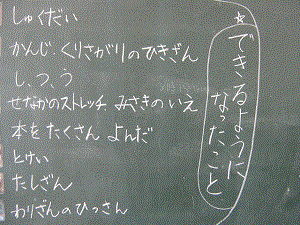 ☆できるように
なったこと
しゅくだい
かんじ くりさがりのひきざん
し、つ、う
せなかのストレッチ みさきのいえ
本をたくさん よんだ
とけい
たしざん
わりざんのひっさん